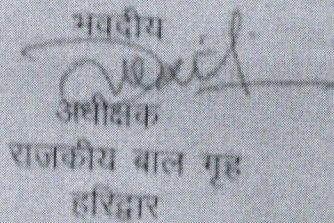 भवदीय
अधीक्षक
राजकीय बाल गृह
हरिद्वार